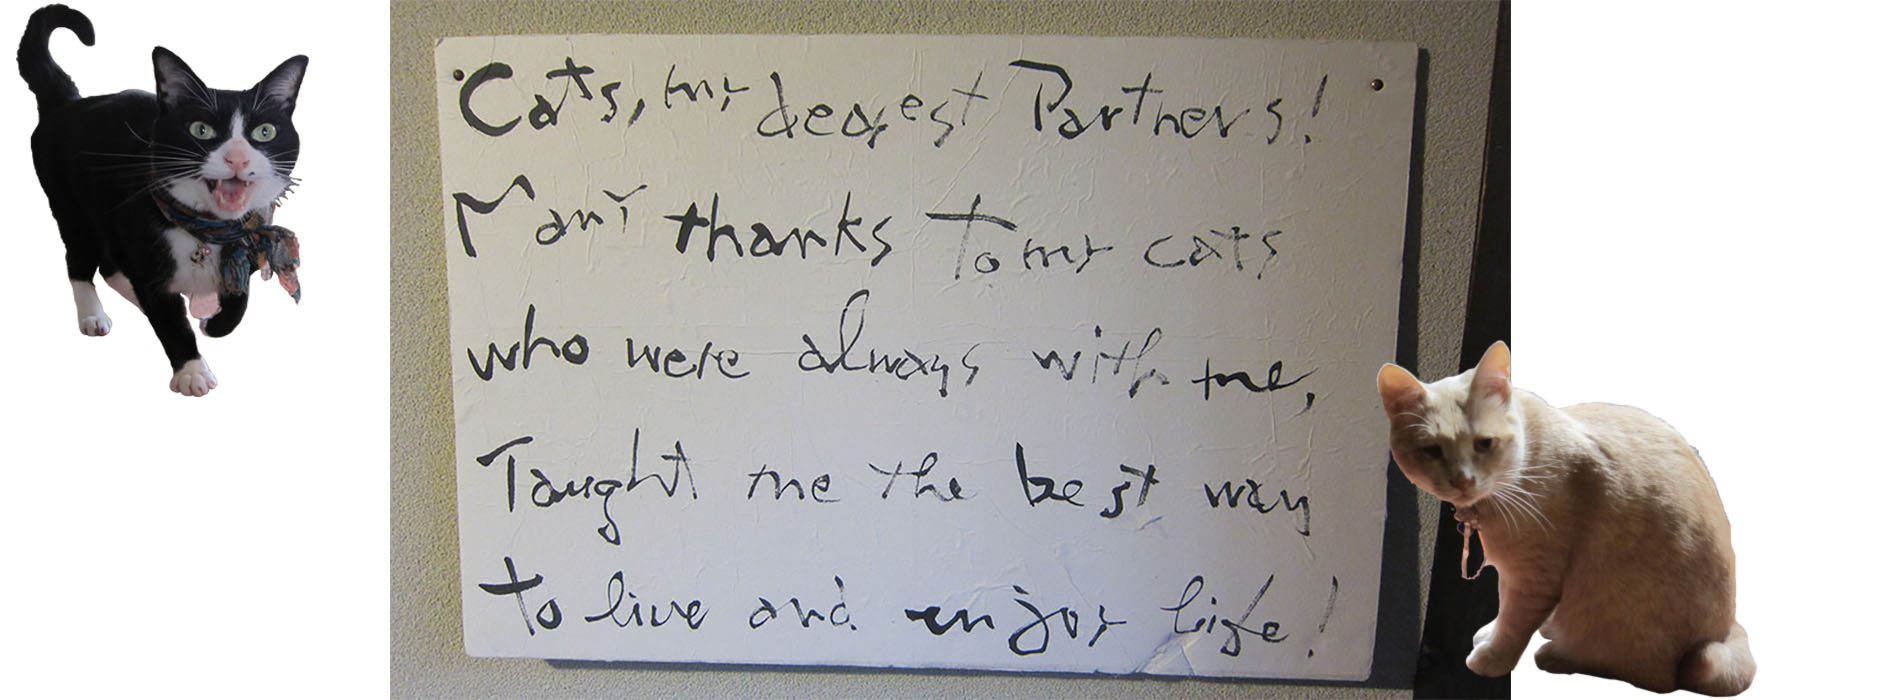 Cats, my dearest Partners!
Many thanks To my cats
who were always with me,
Taught me the best way
to live and enjoy life!